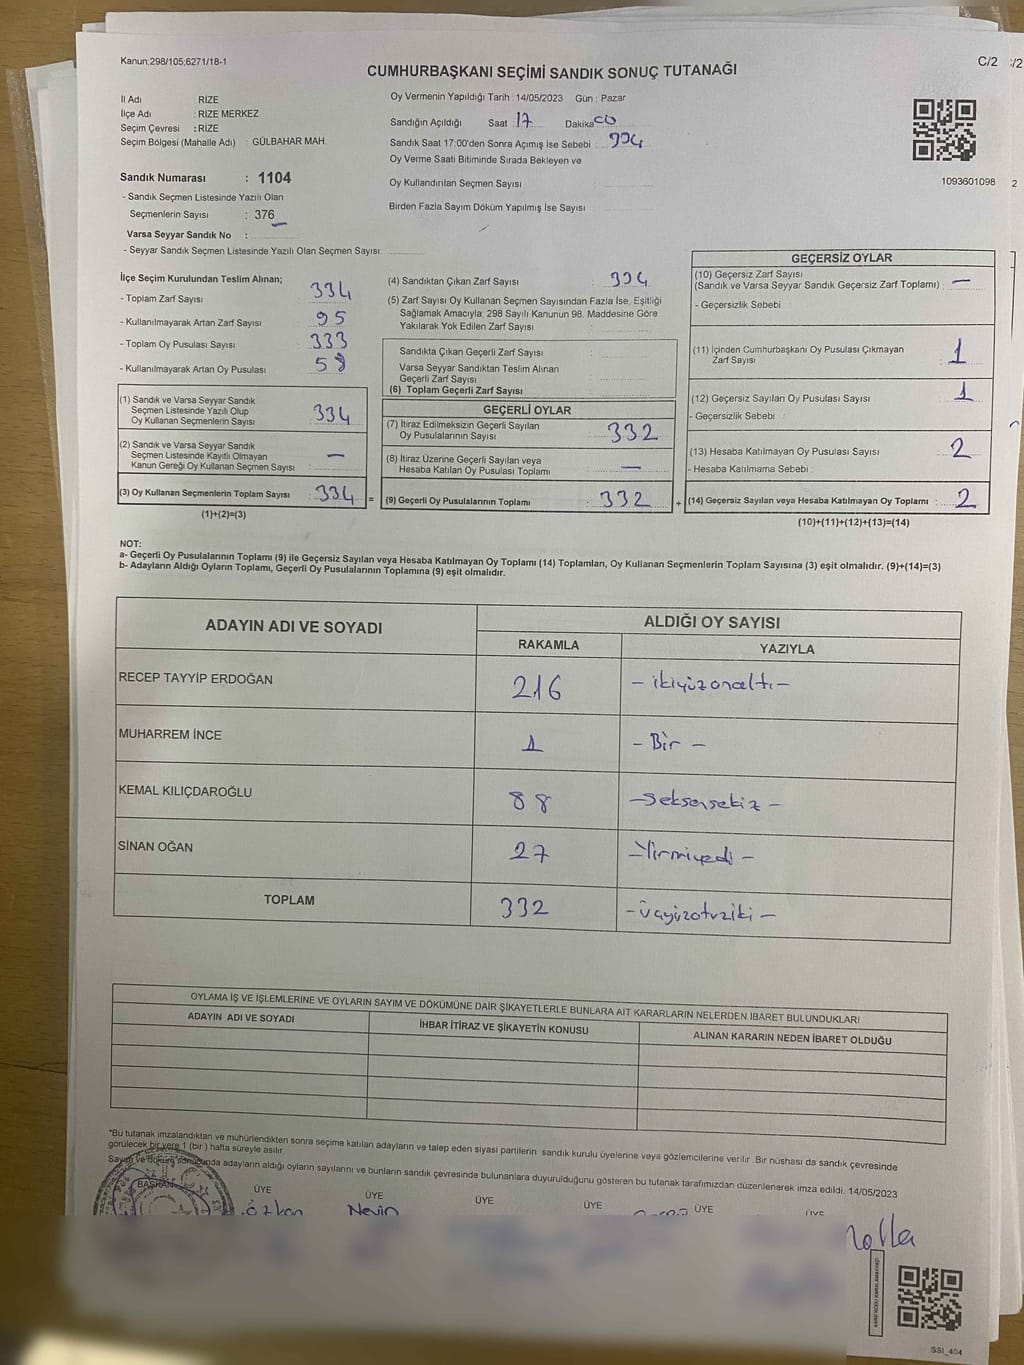 Kanun;298/105;6271/18-1
C/2
:/2
CUMHURBAŞKANI SEÇİMİ SANDIK SONUÇ TUTANAĞI
İl Adı : RİZE
İlçe Adı : RİZE MERKEZ
Seçim Çevresi : RİZE
Seçim Bölgesi (Mahalle Adı) : GÜLBAHAR MAH.
Sandık Numarası : 1104
- Sandık Seçmen Listesinde Yazılı Olan
Seçmenlerin Sayısı : 376
Varsa Seyyar Sandık No :
- Seyyar Sandık Seçmen Listesinde Yazılı Olan Seçmen Sayısı:
Oy Vermenin Yapıldığı Tarih : 14/05/2023 Gün : Pazar
Sandığın Açıldığı Saat 17 Dakika
Sandık Saat 17:00'den Sonra Açımış İse Sebebi
Oy Verme Saati Bitiminde Sırada Bekleyen ve
Oy Kullandırılan Seçmen Sayısı :
Birden Fazla Sayım Döküm Yapılmış İse Sayısı
1093601098
2
İlçe Seçim Kurulundan Teslim Alınan;
- Toplam Zarf Sayısı : 334
- Kullanılmayarak Artan Zarf Sayısı : 95
- Toplam Oy Pusulası Sayısı : 333
- Kullanılmayarak Artan Oy Pusulası : 58
(1) Sandık ve Varsa Seyyar Sandık
Seçmen Listesinde Yazılı Olup
Oy Kullanan Seçmenlerin Sayısı : 334
(2) Sandık ve Varsa Seyyar Sandık
Seçmen Listesinde Kayıtlı Olmayan
Kanun Gereği Oy Kullanan Seçmen Sayısı : —
(3) Oy Kullanan Seçmenlerin Toplam Sayısı : 334
(1)+(2)=(3)
(4) Sandıktan Çıkan Zarf Sayısı : 334
(5) Zarf Sayısı Oy Kullanan Seçmen Sayısından Fazla İse, Eşitliği
Sağlamak Amacıyla, 298 Sayılı Kanunun 98. Maddesine Göre
Yakılarak Yok Edilen Zarf Sayısı :
Sandıkta Çıkan Geçerli Zarf Sayısı :
Varsa Seyyar Sandıktan Teslim Alınan
Geçerli Zarf Sayısı
(6) Toplam Geçerli Zarf Sayısı
=
GEÇERLİ OYLAR
(7) İtiraz Edilmeksizin Geçerli Sayılan
Oy Pusulalarının Sayısı : 332
(8) İtiraz Üzerine Geçerli Sayılan veya
Hesaba Katılan Oy Pusulası Toplamı : —
(9) Geçerli Oy Pusulalarının Toplamı : 332
+
GEÇERSİZ OYLAR
(10) Geçersiz Zarf Sayısı
(Sandık ve Varsa Seyyar Sandık Geçersiz Zarf Toplamı) : —
- Geçersizlik Sebebi :
(11) İçinden Cumhurbaşkanı Oy Pusulası Çıkmayan
Zarf Sayısı : 1
(12) Geçersiz Sayılan Oy Pusulası Sayısı : 1
- Geçersizlik Sebebi :
(13) Hesaba Katılmayan Oy Pusulası Sayısı : 2
- Hesaba Katılmama Sebebi :
(14) Geçersiz Sayılan veya Hesaba Katılmayan Oy Toplamı : 2
(10)+(11)+(12)+(13)=(14)
NOT:
a- Geçerli Oy Pusulalarının Toplamı (9) ile Geçersiz Sayılan veya Hesaba Katılmayan Oy Toplamı (14) Toplamları, Oy Kullanan Seçmenlerin Toplam Sayısına (3) eşit olmalıdır. (9)+(14)=(3)
b- Adayların Aldığı Oyların Toplamı, Geçerli Oy Pusulalarının Toplamına (9) eşit olmalıdır.
ADAYIN ADI VE SOYADI
ALDIĞI OY SAYISI
RAKAMLA YAZIYLA
RECEP TAYYİP ERDOĞAN 216 – ikiyüzonaltı –
MUHARREM İNCE 1 – Bir –
KEMAL KILIÇDAROĞLU 88 – Seksensekiz –
SİNAN OĞAN 27 – Yirmiyedi –
TOPLAM 332 – üçyüzotuziki –
OYLAMA İŞ VE İŞLEMLERİNE VE OYLARIN SAYIM VE DÖKÜMÜNE DAİR ŞİKAYETLERLE BUNLARA AİT KARARLARIN NELERDEN İBARET BULUNDUKLARI
ADAYIN ADI VE SOYADI
İHBAR İTİRAZ VE ŞİKAYETİN KONUSU
ALINAN KARARIN NEDEN İBARET OLDUĞU
*Bu tutanak imzalandıktan ve mühürlendikten sonra seçime katılan adayların ve talep eden siyasi partilerin sandık kurulu üyelerine veya gözlemcilerine verilir. Bir nüshası da sandık çevresinde
görülecek bir yere 1 (bir) hafta süreyle asılır.
Sayım ve döküm sonucunda adayların aldığı oyların sayılarını ve bunların sandık çevresinde bulunanlara duyurulduğunu gösteren bu tutanak tarafımızdan düzenlenerek imza edildi. 14/05/2023
BAŞKAN ÜYE ÜYE ÜYE ÜYE ÜYE ÜYE
Özkan Nevin
SSI_404